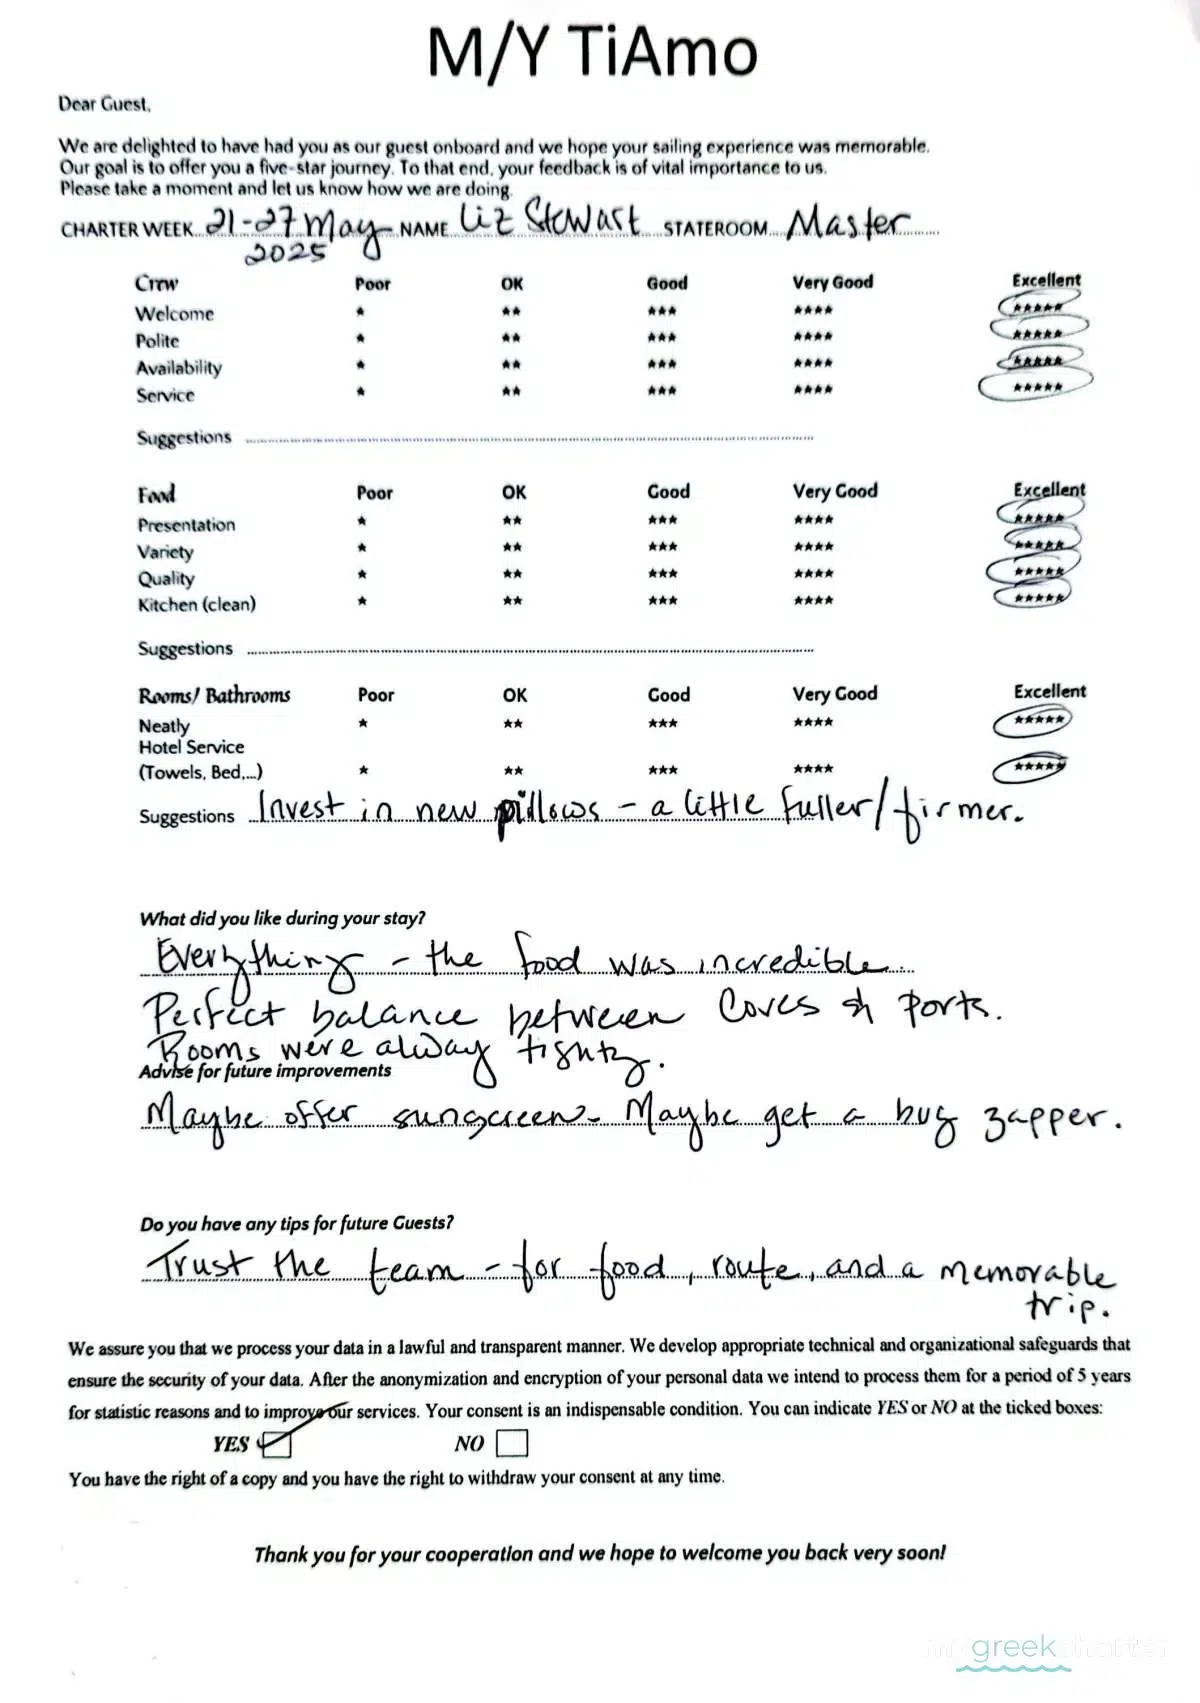 M/Y TiAmo
Dear Guest,
We are delighted to have had you as our guest onboard and we hope your sailing experience was memorable.
Our goal is to offer you a five-star journey. To that end, your feedback is of vital importance to us.
Please take a moment and let us know how we are doing.
CHARTER WEEK 21-27 May NAME Liz Stewart STATEROOM Master
2025
Crew Poor OK Good Very Good Excellent
Welcome ★ ★★ ★★★ ★★★★ ★★★★★
Polite ★ ★★ ★★★ ★★★★ ★★★★★
Availability ★ ★★ ★★★ ★★★★ ★★★★★
Service ★ ★★ ★★★ ★★★★ ★★★★★
Suggestions
Food Poor OK Good Very Good Excellent
Presentation ★ ★★ ★★★ ★★★★ ★★★★★
Variety ★ ★★ ★★★ ★★★★ ★★★★★
Quality ★ ★★ ★★★ ★★★★ ★★★★★
Kitchen (clean) ★ ★★ ★★★ ★★★★ ★★★★★
Suggestions
Rooms/ Bathrooms Poor OK Good Very Good Excellent
Neatly ★ ★★ ★★★ ★★★★ ★★★★★
Hotel Service
(Towels, Bed,...) ★ ★★ ★★★ ★★★★ ★★★★★
Suggestions Invest in new pillows - a little fuller/firmer.
What did you like during your stay?
Everything - the food was incredible.
Perfect balance between Coves & Ports.
Rooms were alway tighty.
Advise for future improvements
Maybe offer sungcreen - Maybe get a bug zapper.
Do you have any tips for future Guests?
Trust the team - for food, route, and a memorable
trip.
We assure you that we process your data in a lawful and transparent manner. We develop appropriate technical and organizational safeguards that
ensure the security of your data. After the anonymization and encryption of your personal data we intend to process them for a period of 5 years
for statistic reasons and to improve our services. Your consent is an indispensable condition. You can indicate YES or NO at the ticked boxes:
YES NO
You have the right of a copy and you have the right to withdraw your consent at any time.
Thank you for your cooperation and we hope to welcome you back very soon!
my greek charter